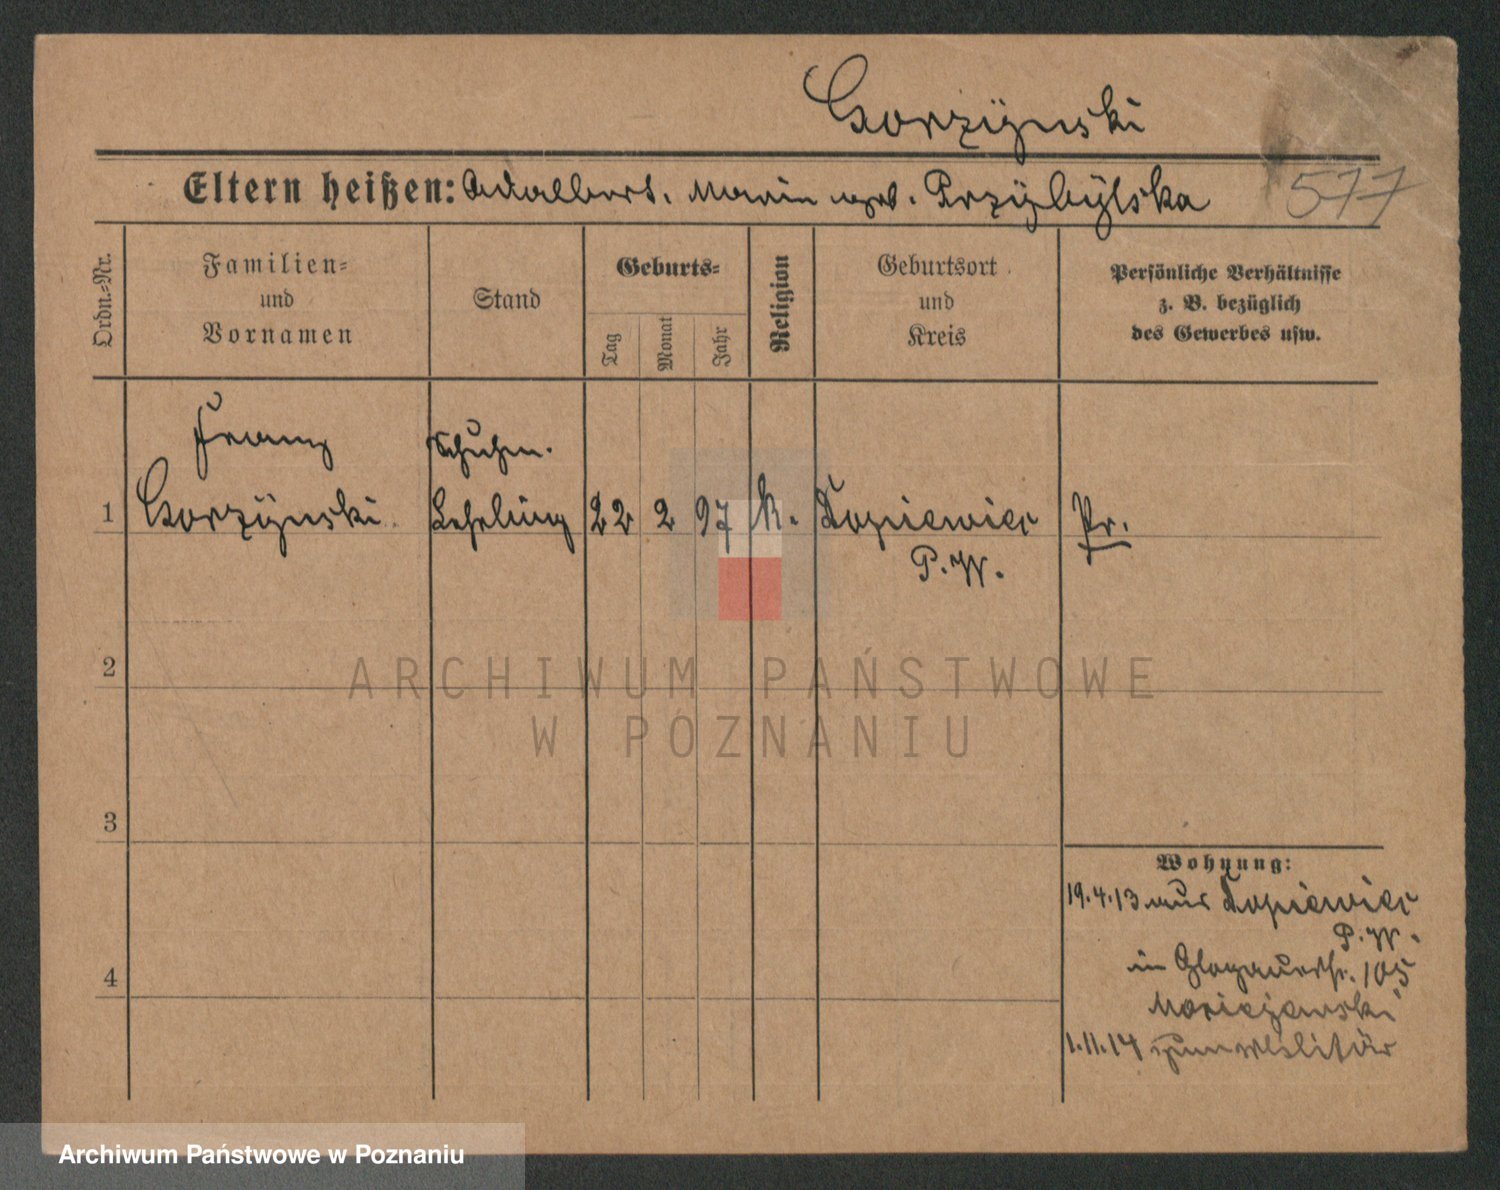 Gorzÿnski
Eltern heißen: Adalbert. Marie geb. Przÿbÿlska 577
Ordn.-Nr.
Familien-
und
Vornamen
Stand
Geburts-
Tag
Monat
Jahr
Religion
Geburtsort
und
Kreis
Persönliche Verhältnisse
z. B. bezüglich
des Gewerbes usw.
Franz Schuhm.
1 Gorzÿnski Lehrling 22 2 97 k. Dopiewiec Pr.
P. W.
2
ARCHIWUM PAŃSTWOWE
W POZNANIU
3
Wohnung:
19.4.13 aus Dopiewiec
P. W.
in Glogauerstr. 105
4
1.11.14 zum Militär
Archiwum Państwowe w Poznaniu